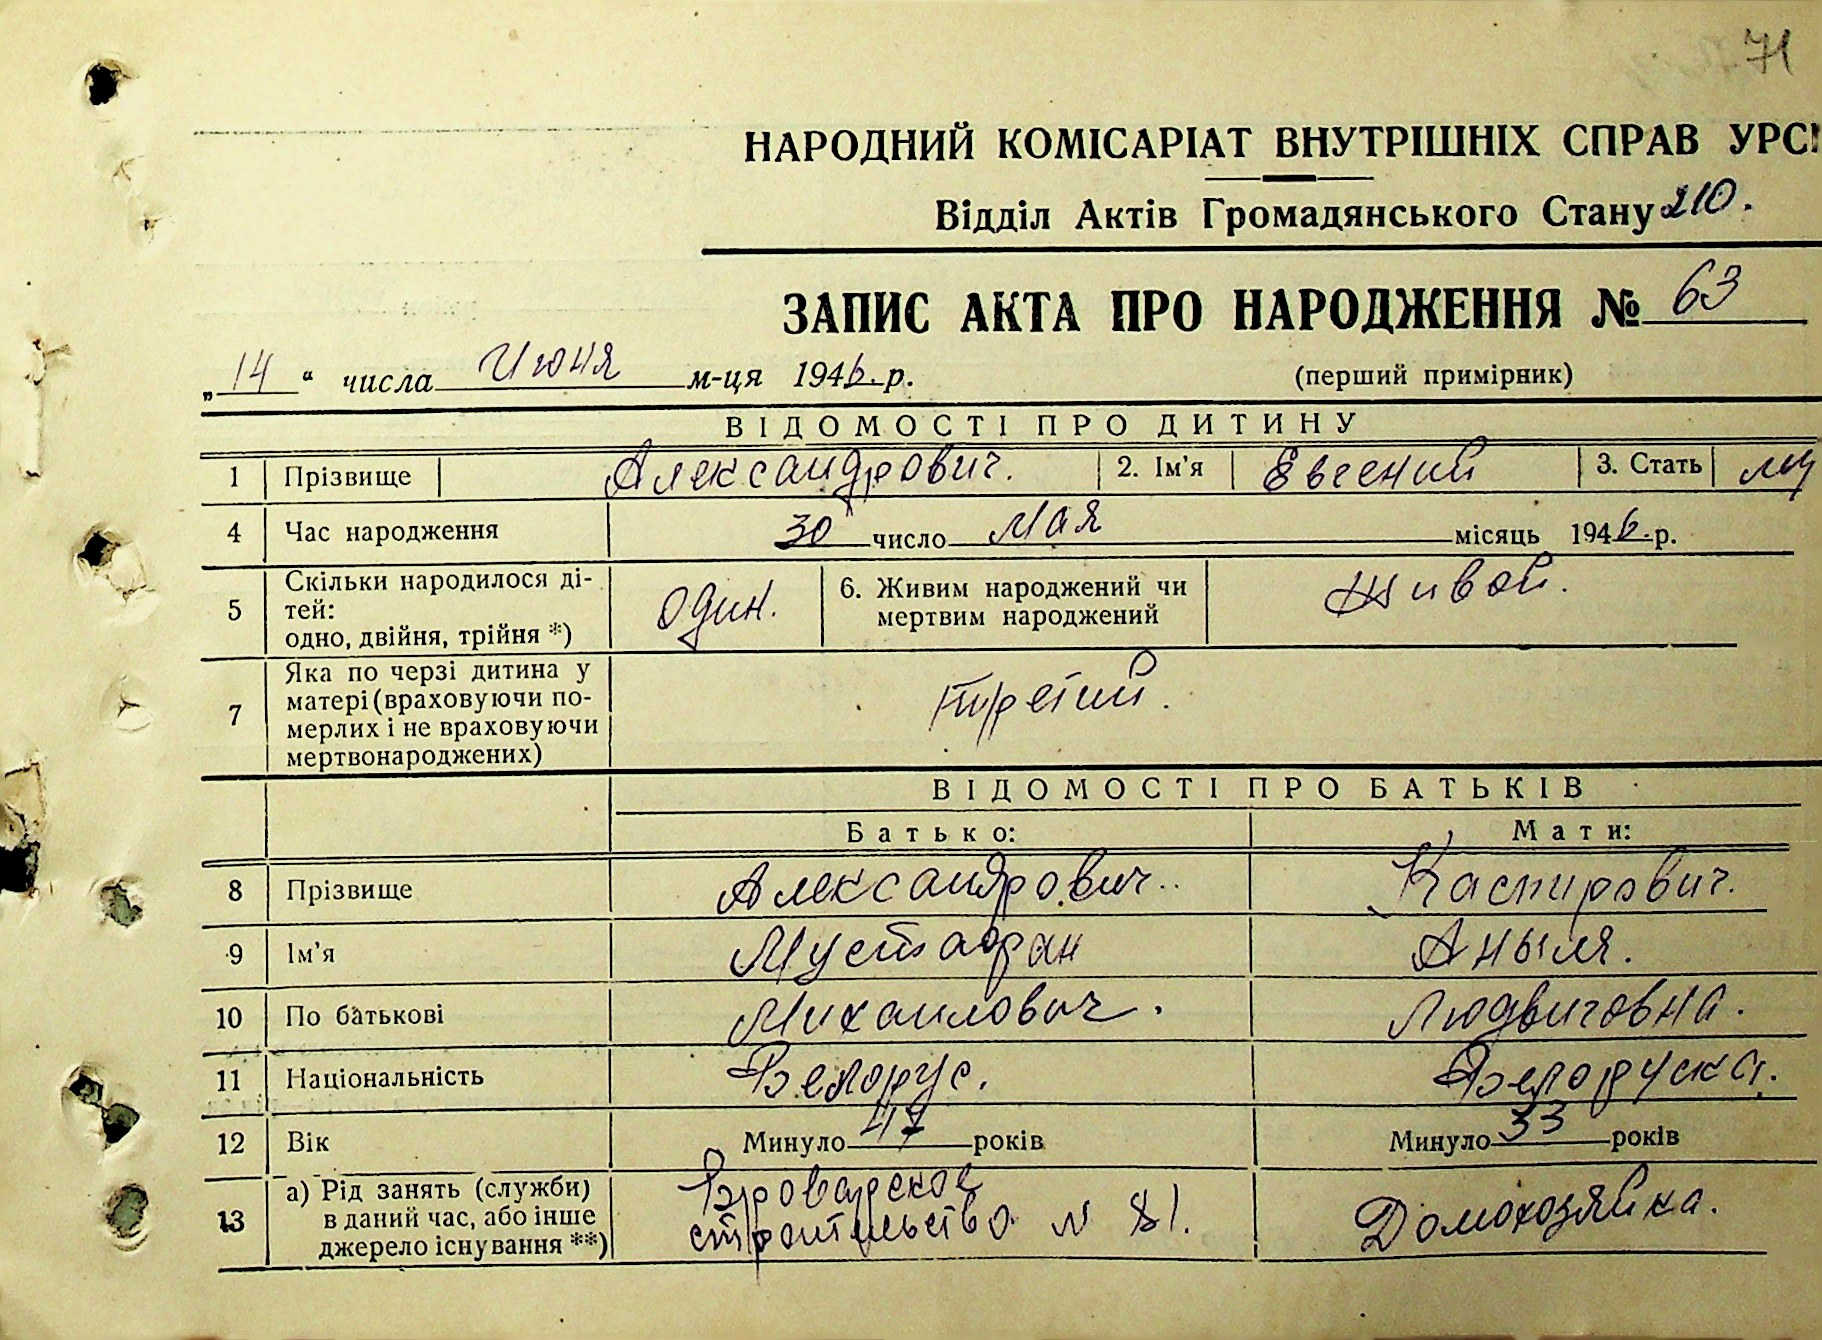 71
НАРОДНИЙ КОМІСАРІАТ ВНУТРІШНІХ СПРАВ УРСР
Відділ Актів Громадянського Стану 210.
ЗАПИС АКТА ПРО НАРОДЖЕННЯ № 63
„14“ числа Июня м-ця 1946 р. (перший примірник)
ВІДОМОСТІ ПРО ДИТИНУ
1 Прізвище Александрович. 2. Ім'я Евгений 3. Стать му
4 Час народження 30 число Мая місяць 1946 р.
5 Скільки народилося ді-
тей:
одно, двійня, трійня *) один. 6. Живим народжений чи
мертвим народжений живой.
7 Яка по черзі дитина у
матері (враховуючи по-
мерлих і не враховуючи
мертвонароджених) третий.
ВІДОМОСТІ ПРО БАТЬКІВ
Батько: Мати:
8 Прізвище Александрович. Каспирович.
9 Ім'я Мустафан Аныля.
10 По батькові Михаилович. Людвиговна.
11 Національність Белорус. Белоруска.
12 Вік Минуло 47 років Минуло 33 років
13 а) Рід занять (служби)
в даний час, або інше
джерело існування **) Броварское
строительство N 81. Домохозяйка.